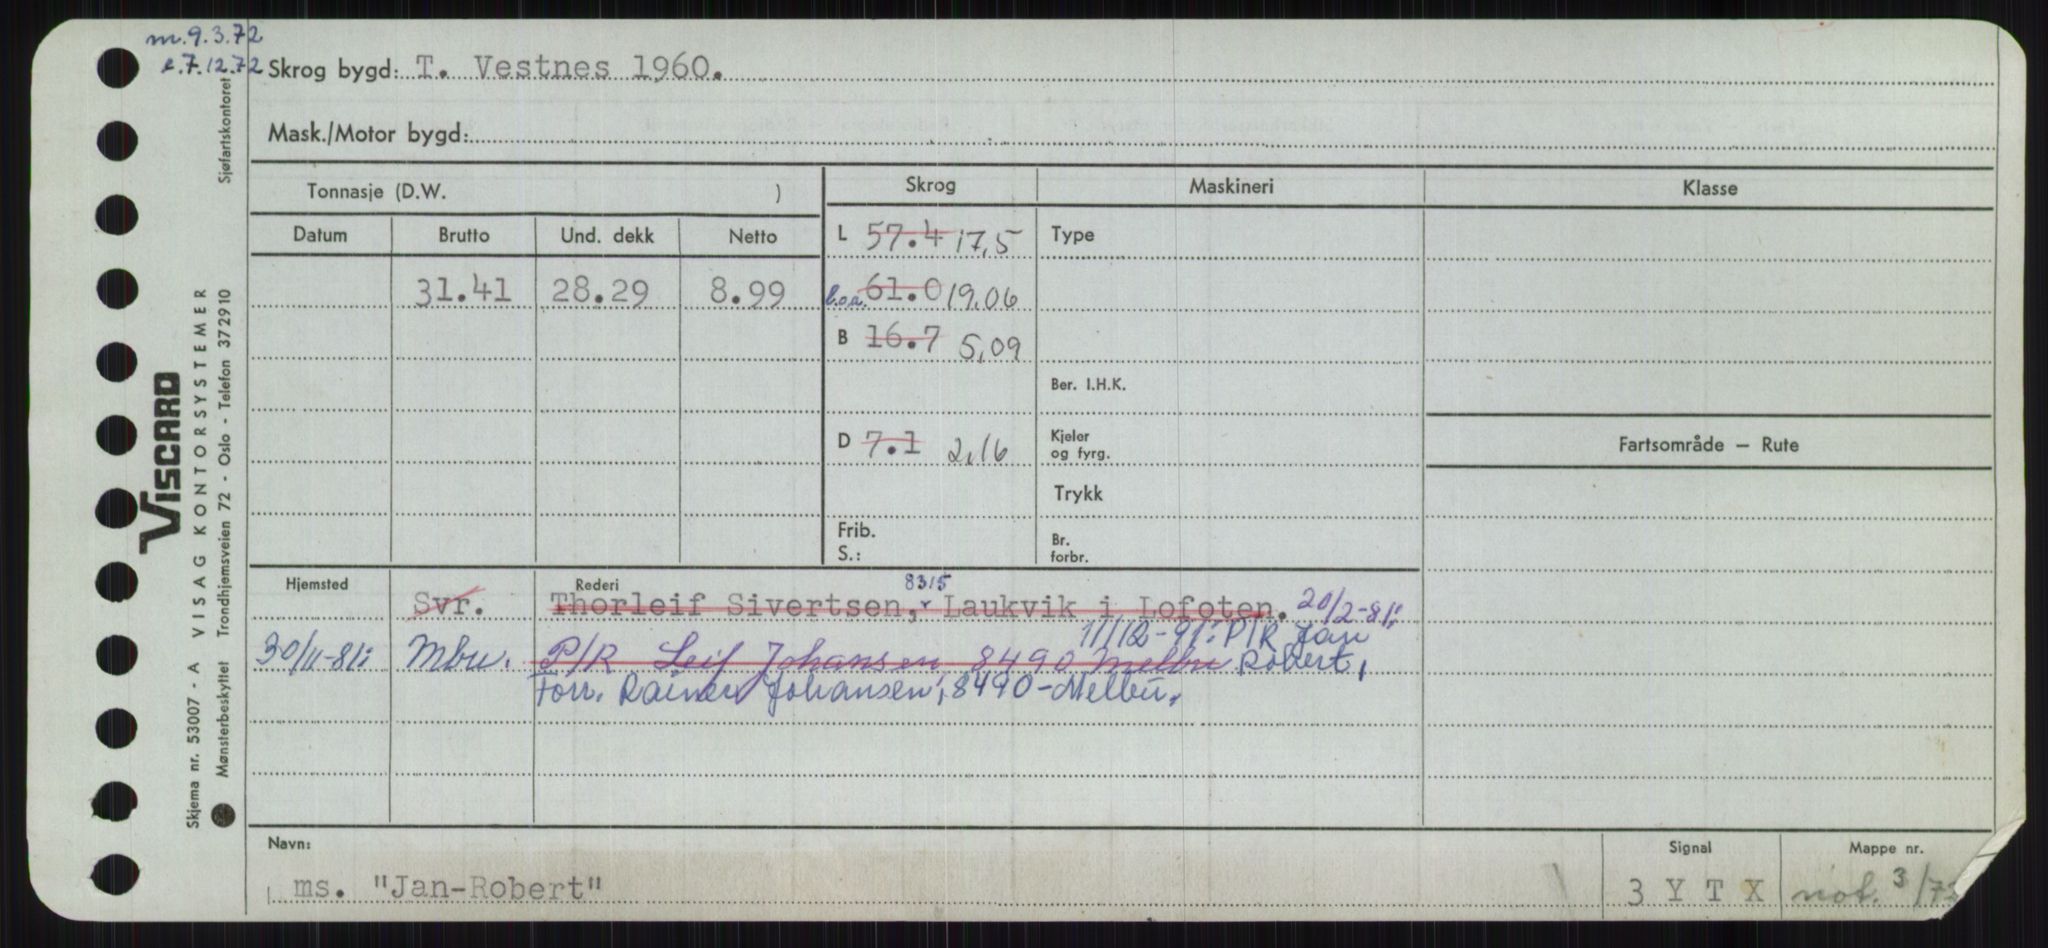 m.9.3.72
e.7.12.72
Skrog bygd: T. Vestnes 1960.
Mask./Motor bygd:
Tonnasje (D.W. )
Skrog
Maskineri
Klasse
Datum
Brutto
Und. dekk
Netto
L 57.4 17,5
Type
31.41
28.29
8.99
l.o.a. 61.0 19,06
B 16.7 5,09
Ber. I.H.K.
D 7.1 2,16
Kjeler
og fyrg.
Fartsområde — Rute
Trykk
Frib.
S.:
Br.
forbr.
Hjemsted
Rederi
8315
Svr.
Thorleif Sivertsen, Laukvik i Lofoten. 20/2-81:
11/12-91: P/R Jan
30/11-81: Mbu. P/R Leif Johansen 8490 Melbu Robert,
Forr. Rainer Johansen, 8490-Melbu.
Navn:
Signal
Mappe nr.
ms. "Jan-Robert"
3 Y T X
not. 3/72
Sjøfartskontoret
VISCARD
Skjema nr. 53007 - A VISAG KONTORSYSTEMER
Mønsterbeskyttet Trondhjemsveien 72 - Oslo - Telefon 372910